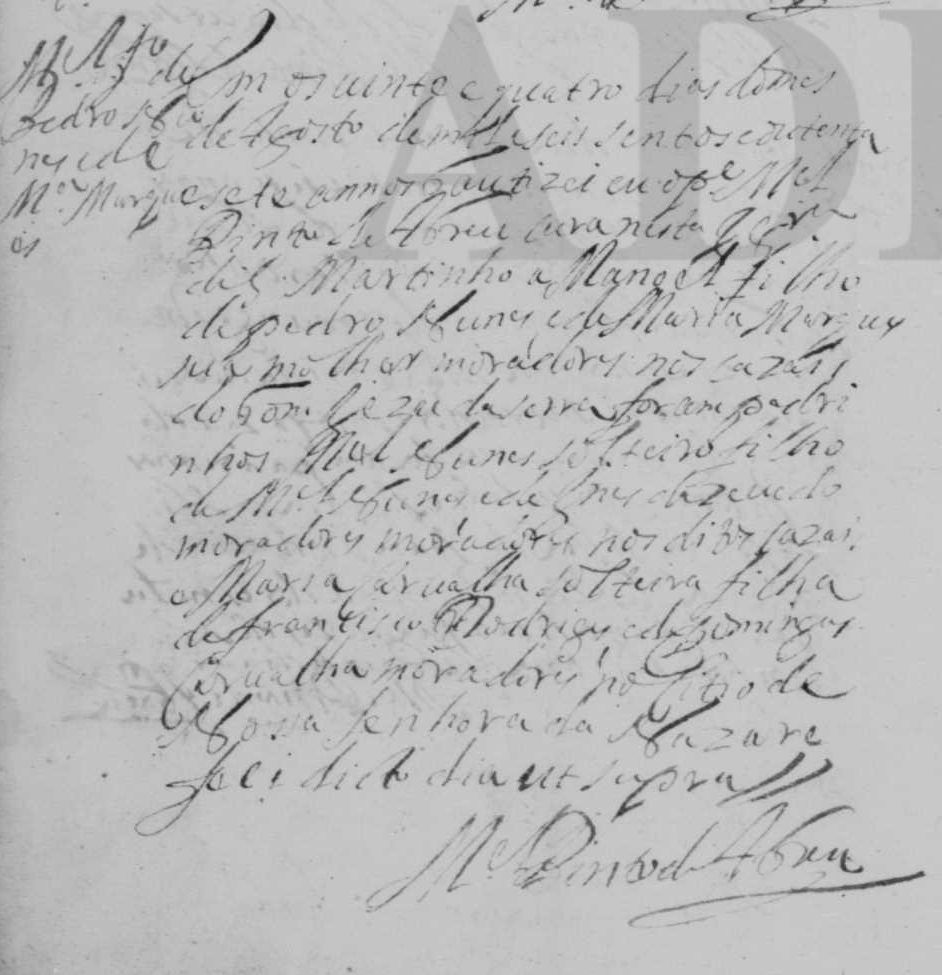 M.el f.o de
Pedro Nu
nes e de
M.a Marqu
es
Em os uinte e quatro dias do mes
de Agosto de mil e seis sentos e outenta
e sete annos bautizei eu o P.e M.el
Pinto de Abreu cura nesta Igra
de S. Martinho a Manoel filho
de pedro Nunes e de Maria Marques
sua molher moradores nos cazais
do bom Jezu da serra foram padri
nhos M.el Nunes solteiro filho
de M.el Nunes e de Ines dazeuedo
moradores moradores nos ditos cazais
e Maria Carualha solteira filha
de francisco Rodrigues e de Domingas
Carualha moradores no sitio de
Nossa Senhora da Nazare
dicto dia ut supra
M.el Pinto de Abreu
ADL